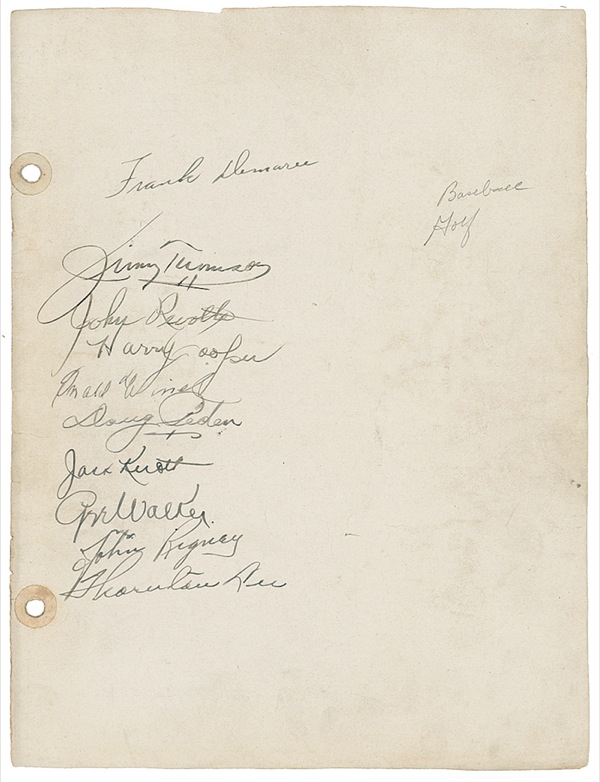 Frank Demaree
Baseball
Golf
Jimmy Thomson
John Revolta
Harry Cooper
Doug Peden
Jack Knott
Gee Walker
John Rigney
Thornton Lee